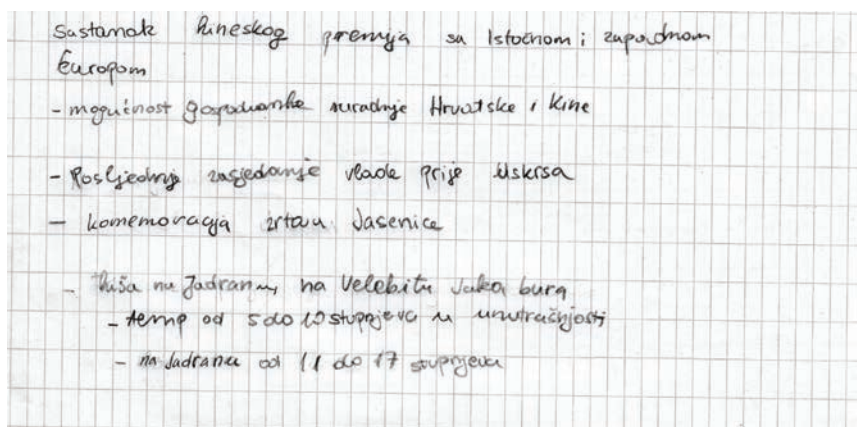 Sastanak kineskog premija sa Istočnom i zapadnom
Europom
- mogućnost gospodarske suradnje Hrvatske i Kine
- Posljednje zasjedanje vlade prije Uskrsa
- komemoracija žrtava Jasenice
- kiša na Jadranu, na Velebitu Jaka bura
- temp od 5 do 10 stupnjeva u unutrašnjosti
- na Jadranu od 11 do 17 stupnjeva